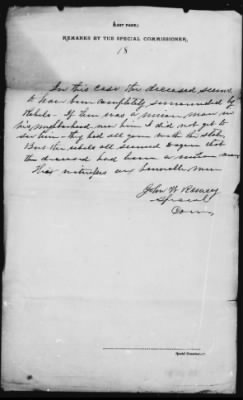 (LAST PAGE.)
REMARKS BY THE SPECIAL COMMISSIONER.
18
In this case the deceased seems
to have been completely surrounded by
Rebels - If there was a union man in
his neighborhood near him I did not get to
see him - they had all gone with the State,
But the rebels all seemed to agree that
the deceased had been a union man
His witnesses are honorable men
John W Ramsey
Special
Com
Special Commissioner.